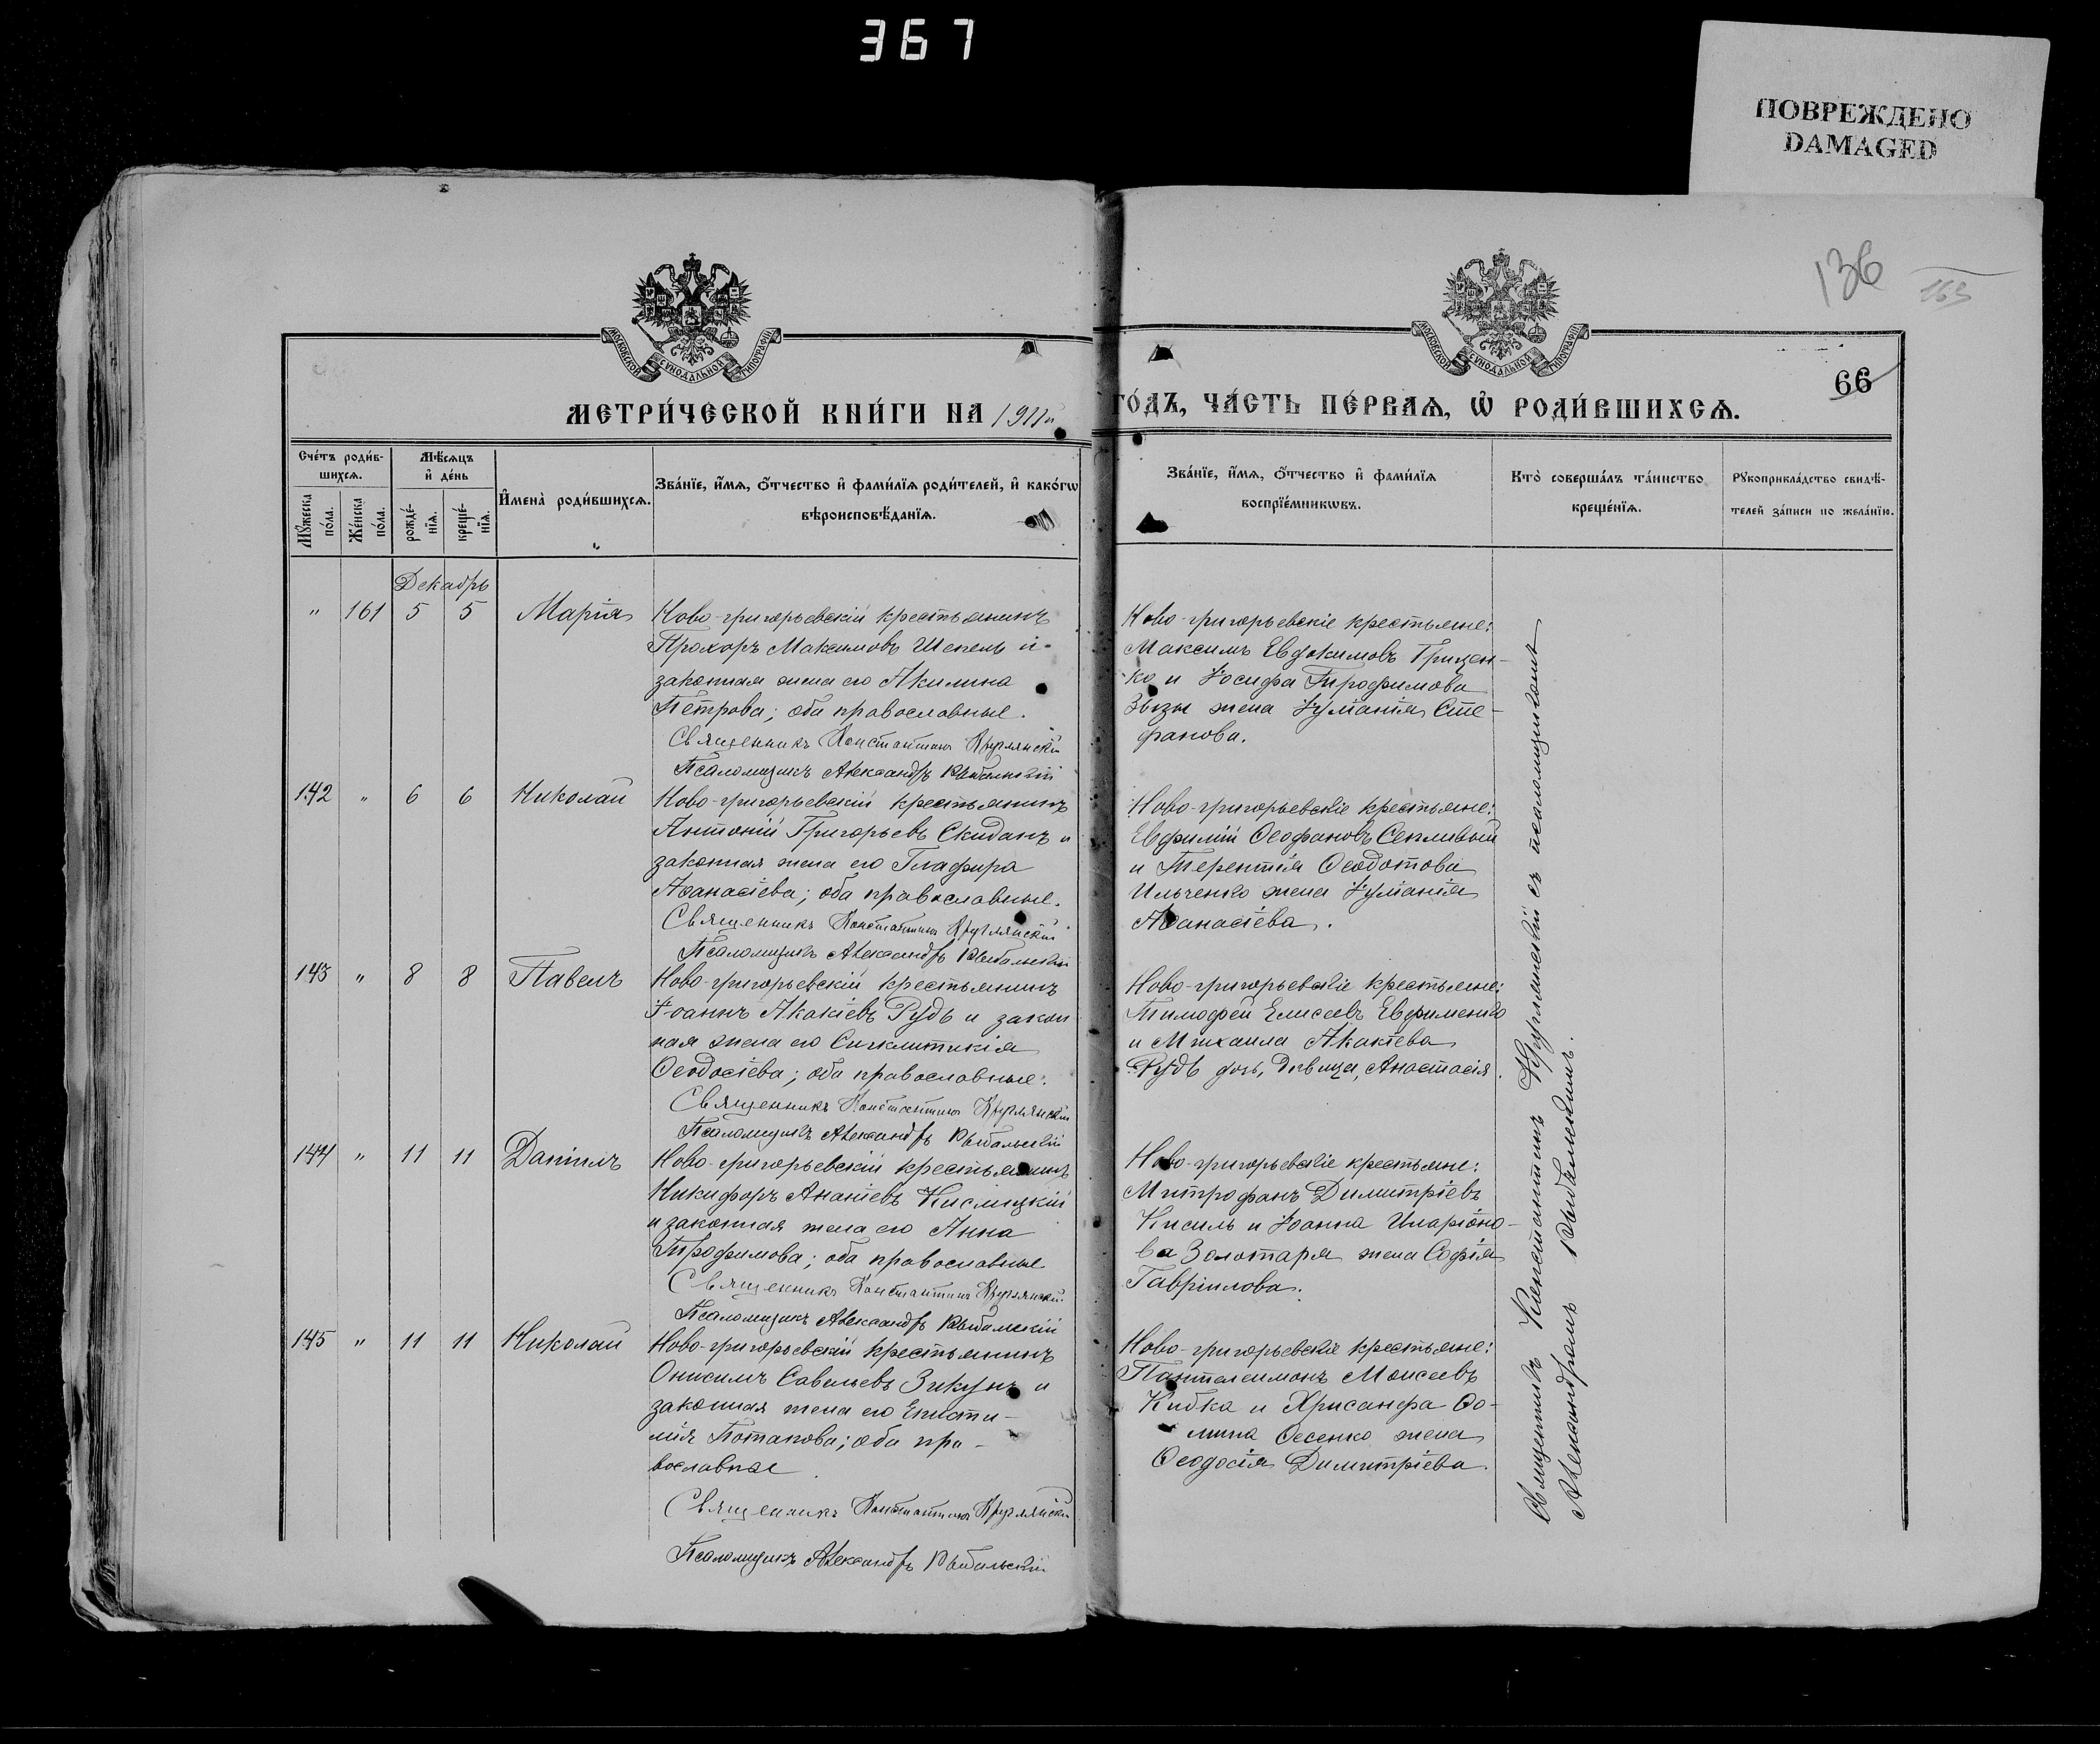 367
ПОВРЕЖДЕНО
DAMAGED
136
163
66
МОСКОВСКОЙ СѴНОДАЛЬНОЙ ТИПОГРАФІИ
МОСКОВСКОЙ СѴНОДАЛЬНОЙ ТИПОГРАФІИ
МЕТРИ́ЧЕСКОЙ КНИ́ГИ НА 1911й
ГО́ДЪ, ЧА́СТЬ ПЕ́РВАѦ, Ѿ РОДИ́ВШИХСѦ.
Сче́тъ роди́в-
шихсѧ.
Мꙋ́жеска по́ла.
Же́нска по́ла.
Мѣ́сѧцъ
и҆ де́нь
рожде́-
нїѧ.
креще́-
нїѧ.
И҆мена̀ роди́вшихсѧ.
Зва́нїе, и҆́мѧ, ѻ҆́тчество и҆ фами́лїѧ роди́телей, и҆ како́гѡ
вѣроисповѣ́данїѧ.
Зва́нїе, и҆́мѧ, ѻ҆́тчество и҆ фами́лїѧ
воспрїе́мникѡвъ.
Кто̀ соверша́лъ та́инство
креще́нїѧ.
Рꙋкоприкла́дство свидѣ́-
телей за́писи по жела́нїю.
Декабрь
" 161 5 5 Марія
Ново-григорьевскій крестьянинъ
Прохоръ Максимовъ Шепель и
законная жена его Акилина
Петрова; оба православные.
Священникъ Константинъ Круглянскій
Псаломщикъ Александръ Рыбальскій
Ново-григорьевскіе крестьяне:
Максимъ Евдокимовъ Грицен-
ко и Іосифа Трофимова
Звѣзы жена Іуліанія Сте-
фанова.
142 " 6 6 Николай
Ново-григорьевскій крестьянинъ
Антоній Григорьевъ Скиданъ и
законная жена его Глафира
Аѳанасіева; оба православные.
Священникъ Константинъ Круглянскій
Псаломщикъ Александръ Рыбальскій
Ново-григорьевскіе крестьяне:
Евфимій Ѳеофановъ
и Терентія Ѳеодотова
Ильченко жена Іуліанія
Аѳанасіева.
143 " 8 8 Павелъ
Ново-григорьевскій крестьянинъ
Іоаннъ Акакіевъ Рудь и закон
ная жена его Синклитикія
Ѳеодосіева; оба православные.
Священникъ Константинъ Круглянскій
Псаломщикъ Александръ Рыбальскій
Ново-григорьевскіе крестьяне:
Тимофей Елисеевъ Евфименко
и Михаила Акакіева
Рудь дочь, дѣвица, Анастасія.
144 " 11 11 Даніилъ
Ново-григорьевскій крестьянинъ
Никифоръ Ананіевъ Кислицкій
и законная жена его Анна
Трофимова; оба православные
Священникъ Константинъ Круглянскій
Псаломщикъ Александръ Рыбальскій
Ново-григорьевскіе крестьяне:
Митрофанъ Димитріевъ
Кисиль и Іоанна Иларіоно-
ва Золотаря жена Софія
Гавріилова.
145 " 11 11 Николай
Ново-григорьевскій крестьянинъ
Онисимъ Савельевъ Зикунъ и
законная жена его Еписти-
мія Потапова; оба пра-
вославные
Священникъ Константинъ Круглянскій
Псаломщикъ Александръ Рыбальскій
Ново-григорьевскіе крестьяне:
Пантелеимонъ Моисеевъ
Кибка и Хрисанфа Ѳо-
мина Ѳесенко жена
Ѳеодосія Димитріева.
Священникъ Константинъ Круглянскій съ псаломщикомъ
Александромъ Рыбальскимъ.